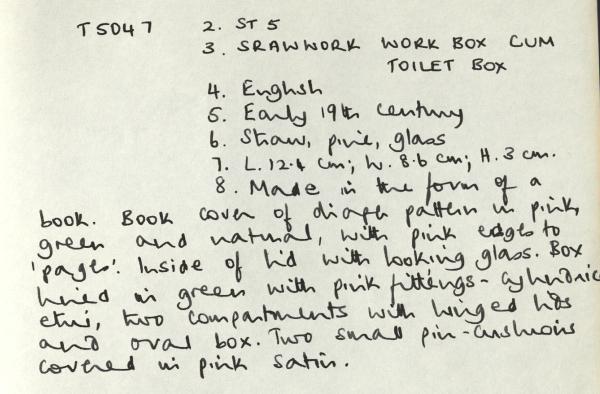 T5047 2. ST 5
3. SRAWWORK WORK BOX CUM
TOILET BOX
4. English
5. Early 19th century
6. Straw, pine, glass
7. L. 12.4 cm; W. 8.6 cm; H. 3 cm.
8. Made in the form of a
book. Book cover of diaper pattern in pink,
green and natural, with pink edges to
'pages'. Inside of lid with looking glass. Box
lined in green with pink fittings - cylindric
etui, two compartments with hinged lids
and oval box. Two small pin-cushions
covered in pink satin.